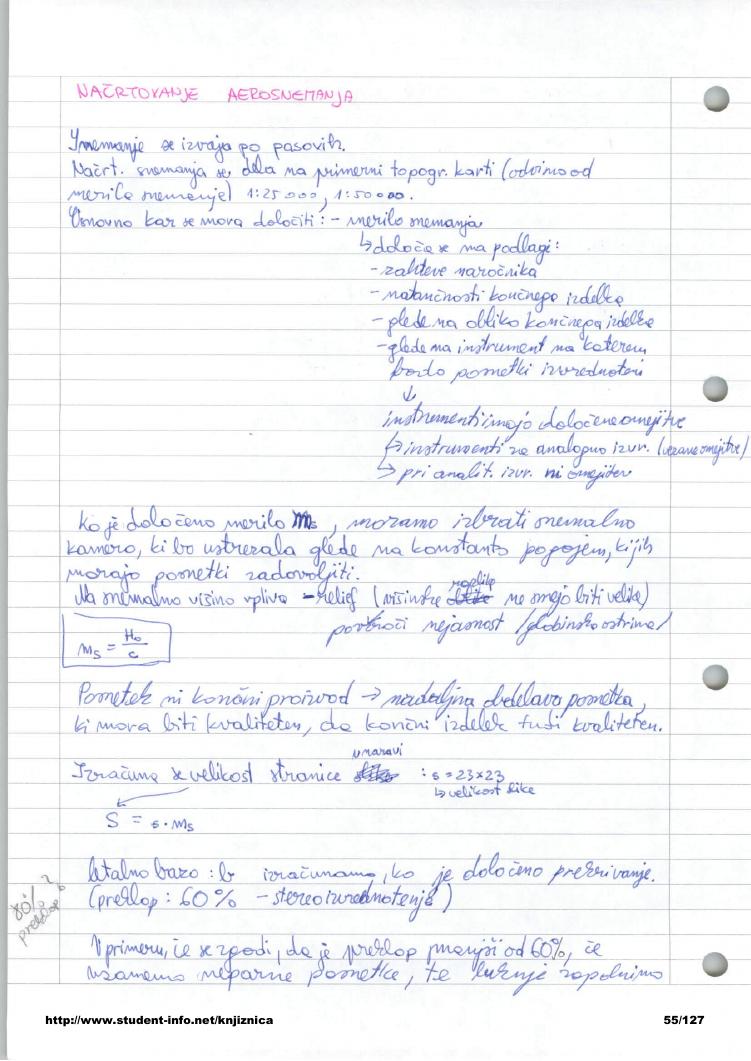 NAČRTOVANJE AEROSNEMANJA
Snemanje se izvaja po pasovih.
Načrt. snemanja se dela na primerni topogr. karti (odvisno od
merila snemanje) 1:25 000, 1:50 000.
Osnovno kar se mora določiti: - merilo snemanja
↳ določa se na podlagi:
- zahteve naročnika
- natančnosti končnega izdelka
- glede na obliko končnega izdelka
- glede na instrument na katerem
bodo posnetki izvrednoteni
↓
instrumenti imajo določene omejitve
↳ instrumenti za analogno izvr. (vezane omejitve)
↳ pri analit. izvr. ni omejitev
Ko je določeno merilo Ms, moramo izbrati snemalno
kamero, ki bo ustrezala glede na konstanto pogojem, ki jih
morajo posnetki zadovoljiti.
Na snemalno višino vpliva - relief (višinske razlike ne smejo biti velike)
povzroči nejasnost /globinsko ostrina/
Ms = Ho/c
Posnetek ni končni proizvod → nadaljna obdelava posnetka,
ki mora biti kvaliteten, da končni izdelek tudi kvaliteten.
Izračuna se velikost stranice v naravi : s = 23×23
↳ velikost slike
S = s · Ms
letalno bazo : b izračunamo, ko je določeno prekrivanje.
(preklop : 60 % - stereoizvrednotenje)
80% ?
preklop b
V primeru, če se zgodi, da je preklop manjši od 60%, če
vzamemo neparne posnetke, te luknje zapolnimo
http://www.student-info.net/knjiznica
55/127